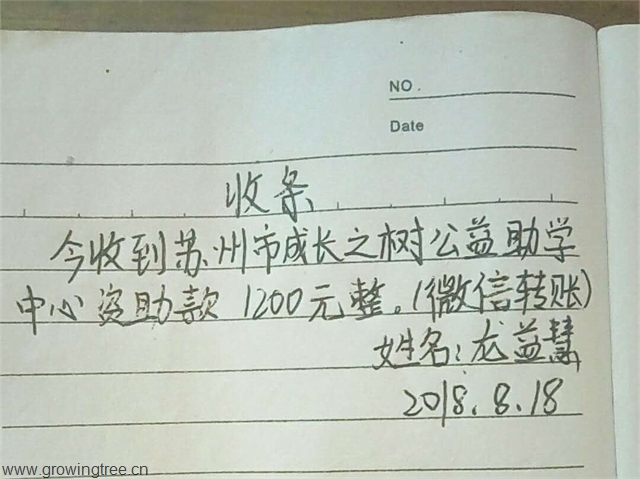 NO.
Date
收条
今收到苏州市成长之树公益助学
中心资助款1200元整。(微信转账)
姓名:龙益慧
2018.8.18
www.growingtree.cn